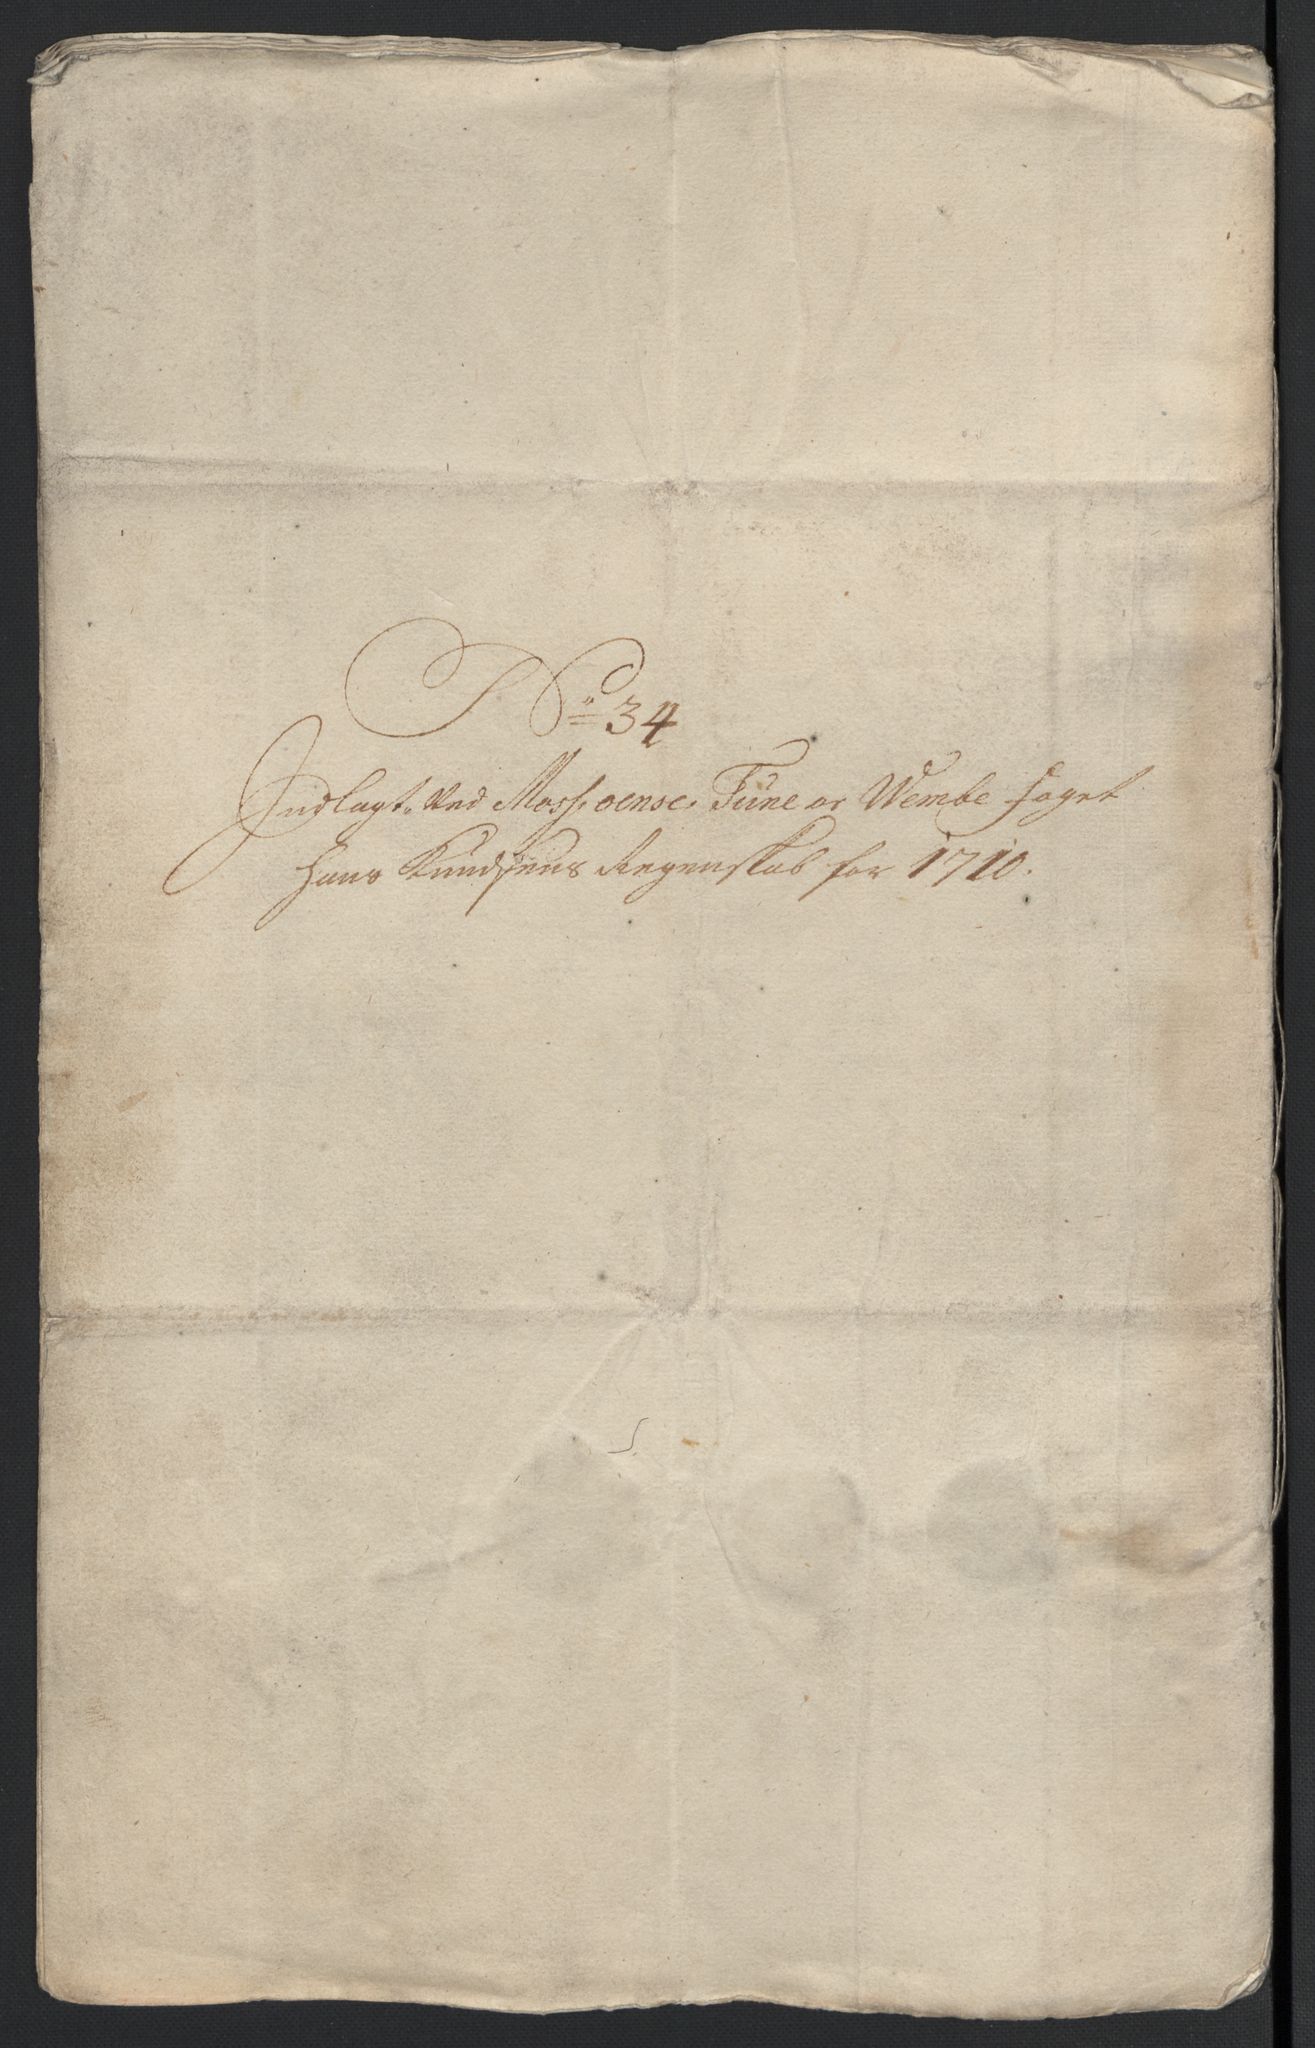 No 34
Indlagt Ved Moss, oense, Tune oc Wembe foget
Hans Knudsens Regenskab for 1710.